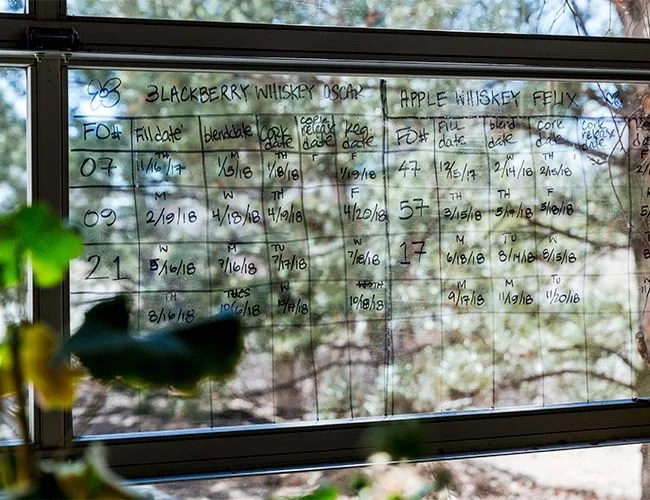 BLACKBERRY WHISKEY OSCAR APPLE WHISKEY FELIX
FO# Fill date blend date Cork date Cork release date Keg date FO# Fill date blend date Cork date Cork release date
TH M TH F F TH W TH
07 11/16/17 1/18/18 1/19/18 47 2/14/18 2/15/18
M W TH F TH TH F
09 2/19/18 4/18/18 4/19/18 4/20/18 57 3/15/18 5/18/18
W M TU W M TU W
21 5/16/18 7/16/18 7/17/18 7/18/18 17 6/18/18 8/14/18 8/15/18
TH TUES W M M TU
8/16/18 10/8/18 9/17/18 11/19/18 11/20/18